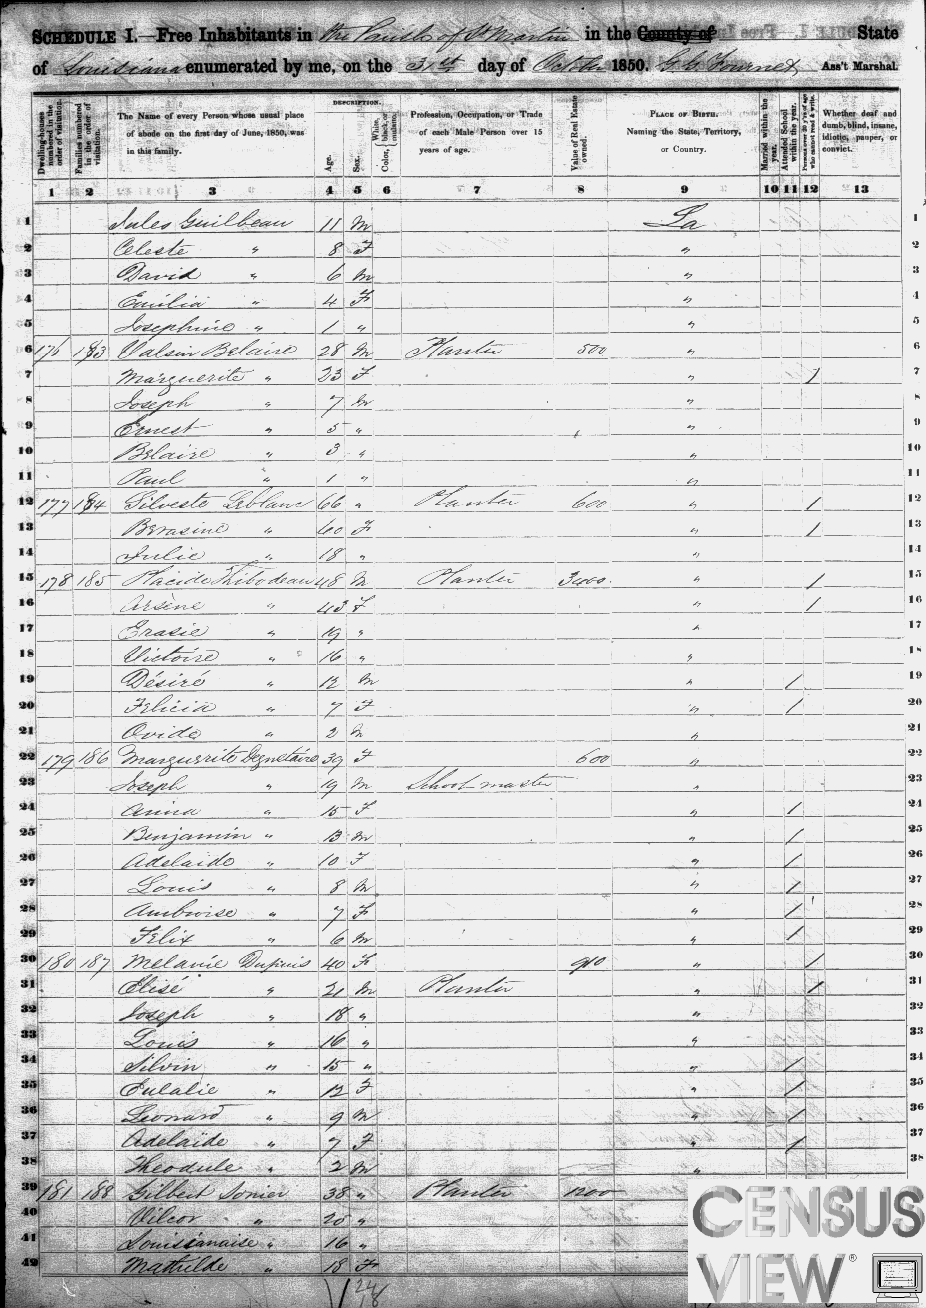 SCHEDULE I.—Free Inhabitants in the Parish of St Martin in the County of State
of Louisiana enumerated by me, on the 31st day of Octbr 1850. Fournet Ass't Marshal.
Dwelling-houses numbered in the order of visitation.
Families numbered in the order of visitation.
The Name of every Person whose usual place of abode on the first day of June, 1850, was in this family.
DESCRIPTION.
Age.
Sex.
Color, { White, black, or mulatto.
Profession, Occupation, or Trade of each Male Person over 15 years of age.
Value of Real Estate owned.
PLACE OF BIRTH. Naming the State, Territory, or Country.
Married within the year.
Attended School within the year.
Persons over 20 y'rs of age who cannot read & write.
Whether deaf and dumb, blind, insane, idiotic, pauper, or convict.
1 2 3 4 5 6 7 8 9 10 11 12 13
1 Jules Guilbeau 11 M La 1
2 Celeste " 8 F " 2
3 David " 6 M " 3
4 Emilia " 4 F " 4
5 Josephine " 1 " " 5
6 176 183 Valsin Belaire 28 M Planter 500 " 6
7 Marguerite " 23 F " / 7
8 Joseph " 7 M " 8
9 Ernest " 5 " " 9
10 Belaire " 3 " " 10
11 Paul " 1 " " 11
12 177 184 Silveste Leblanc 66 " Planter 600 " / 12
13 Berasine " 40 F " / 13
14 Julie " 18 " " 14
15 178 185 Placide Thibodeau 48 M Planter 3400 " / 15
16 Arsène " 43 F " / 16
17 Erasie " 19 " " 17
18 Victoire " 16 " " 18
19 Désiré " 12 M " / 19
20 Felicia " 7 F " / 20
21 Ovide " 2 M " 21
22 179 186 Marguerite 39 F 600 " 22
23 Joseph " 19 M School master " 23
24 Anna " 15 F " / 24
25 Benjamin " 13 M " / 25
26 Adelaide " 10 F " / 26
27 Louis " 8 M " / 27
28 Ambroise " 7 F " / 28
29 Felix " 6 M " / 29
30 180 187 Melanie Dupuis 40 F 910 " / 30
31 Elisé " 21 M Planter " / 31
32 Joseph " 18 " " 32
33 Louis " 16 " " 33
34 Silvin " 15 " " / 34
35 Eulalie " 12 F " / 35
36 Leonard " 9 M " / 36
37 Adelaide " 7 F " / 37
38 Theodule " 2 M " 38
39 181 188 Gilbert Sonier 38 " Planter 1200
40 Vilcor " 20 "
41 Louisianaise " 16 "
42 Mathilde " 18 F
CENSUS
VIEW®